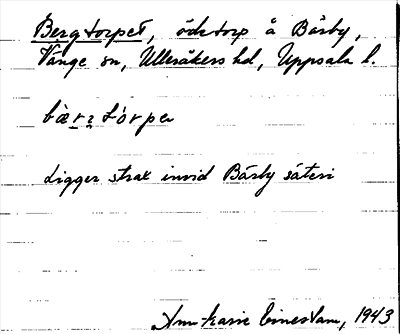 Bergtorpet, ödetorp å Bärby,
Vänge sn, Ulleråkers hd, Uppsala l.
bæ̀rz tórpa
Ligger strax invid Bärby säteri
Ann-Marie 1943